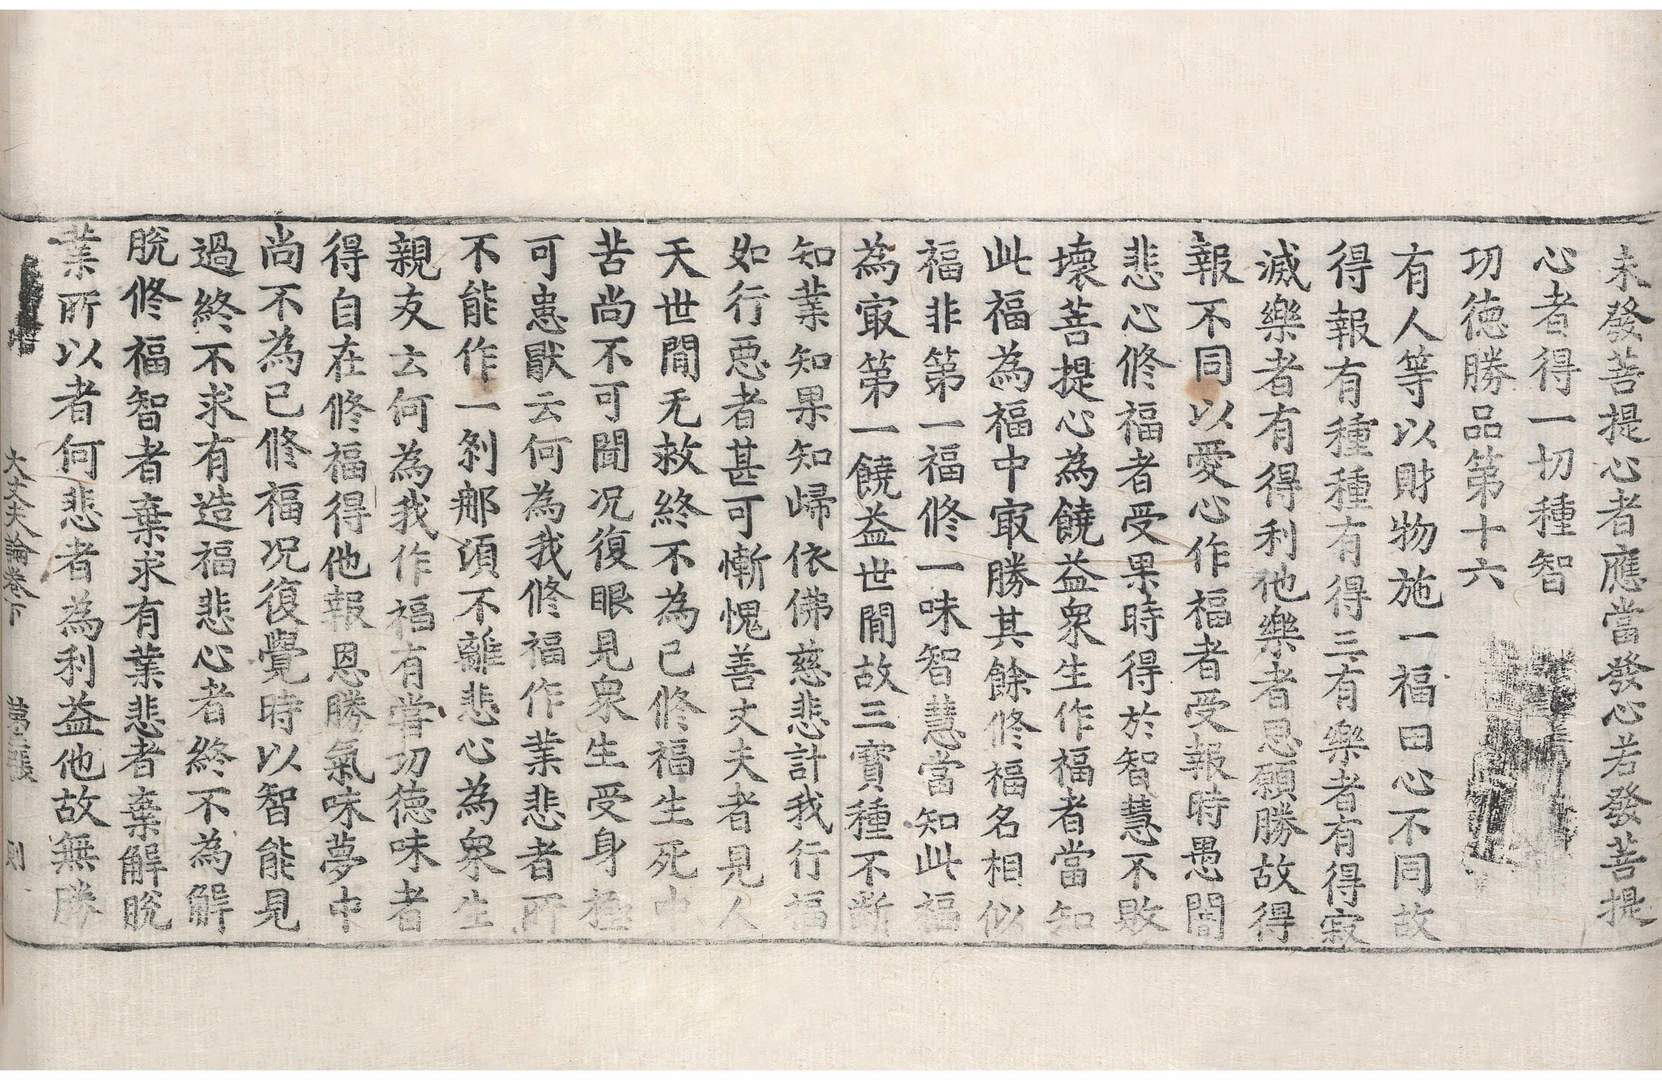 未發菩提心者應當發心若發菩提
心者得一切種智
功徳勝品第十六
有人等以財物施一福田心不同故
得報有種種有得三有樂者有得寂
滅樂者有得利他樂者思願勝故得
報不同以愛心作福者受報時愚闇
悲心修福者受果時得於智慧不敗
壞菩提心為饒益衆生作福者當知
此福為福中㝡勝其餘修福名相似
福非第一福修一味智慧當知此福
為㝡第一饒益世間故三寶種不斷
知業知果知歸依佛慈悲計我行福
如行惡者甚可慚愧善丈夫者見人
天世間无救終不為己修福生死中
苦尚不可聞况復眼見衆生受身極
可患猒云何為我修福作業悲者所
不能作一刹那頃不離悲心為衆生
親友云何為我作福有甞功徳味者
得自在修福得他報恩勝氣味夢中
尚不為己修福况復覺時以智能見
過終不求有造福悲心者終不為解
脫修福智者棄求有業悲者棄解脫
業所以者何悲者為利益他故無勝
大丈夫論卷下 第 張 則